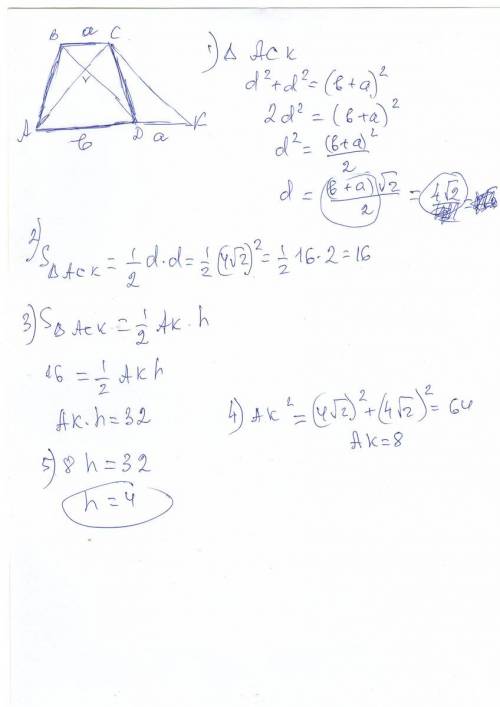 B a C
A b D a K
1) Δ ACK
d² + d² = (b+a)²
2d² = (b+a)²
d² = (b+a)²/2
d = (b+a)√2/2 = 4√2
2) S Δ ACK = 1/2 d·d = 1/2 (4√2)² = 1/2 16·2 = 16
3) S Δ ACK = 1/2 AK · h
16 = 1/2 AK h
AK · h = 32
4) AK² = (4√2)² + (4√2)² = 64
AK = 8
5) 8 h = 32
h = 4